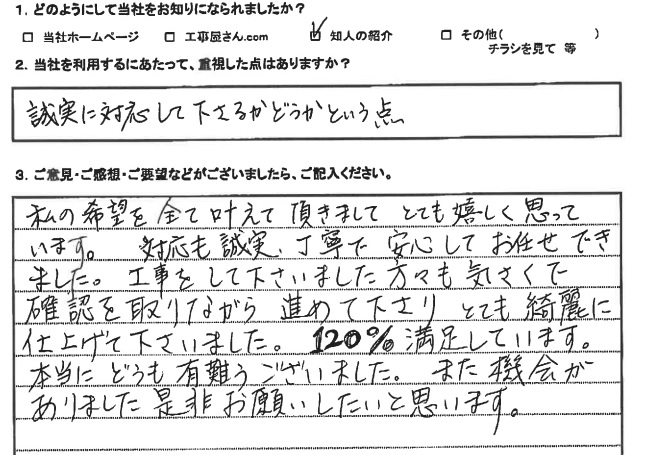 1. どのようにして当社をお知りになられましたか？
□ 当社ホームページ □ 工事屋さん.com ☑ 知人の紹介 □ その他(　　　　　)
チラシを見て 等
2. 当社を利用するにあたって、重視した点はありますか？
誠実に対応して下さるかどうかという点
3. ご意見・ご感想・ご要望などがございましたら、ご記入ください。
私の希望を全て叶えて頂きまして とても嬉しく思って
います。 対応も誠実、丁寧で 安心して お任せ でき
ました。 工事をして下さいました方々も 気さくで
確認を取りながら 進めて下さり とても綺麗に
仕上げて下さいました。 120% 満足しています。
本当に どうも 有難うございました。 また 機会が
ありました 是非 お願いしたいと思います。